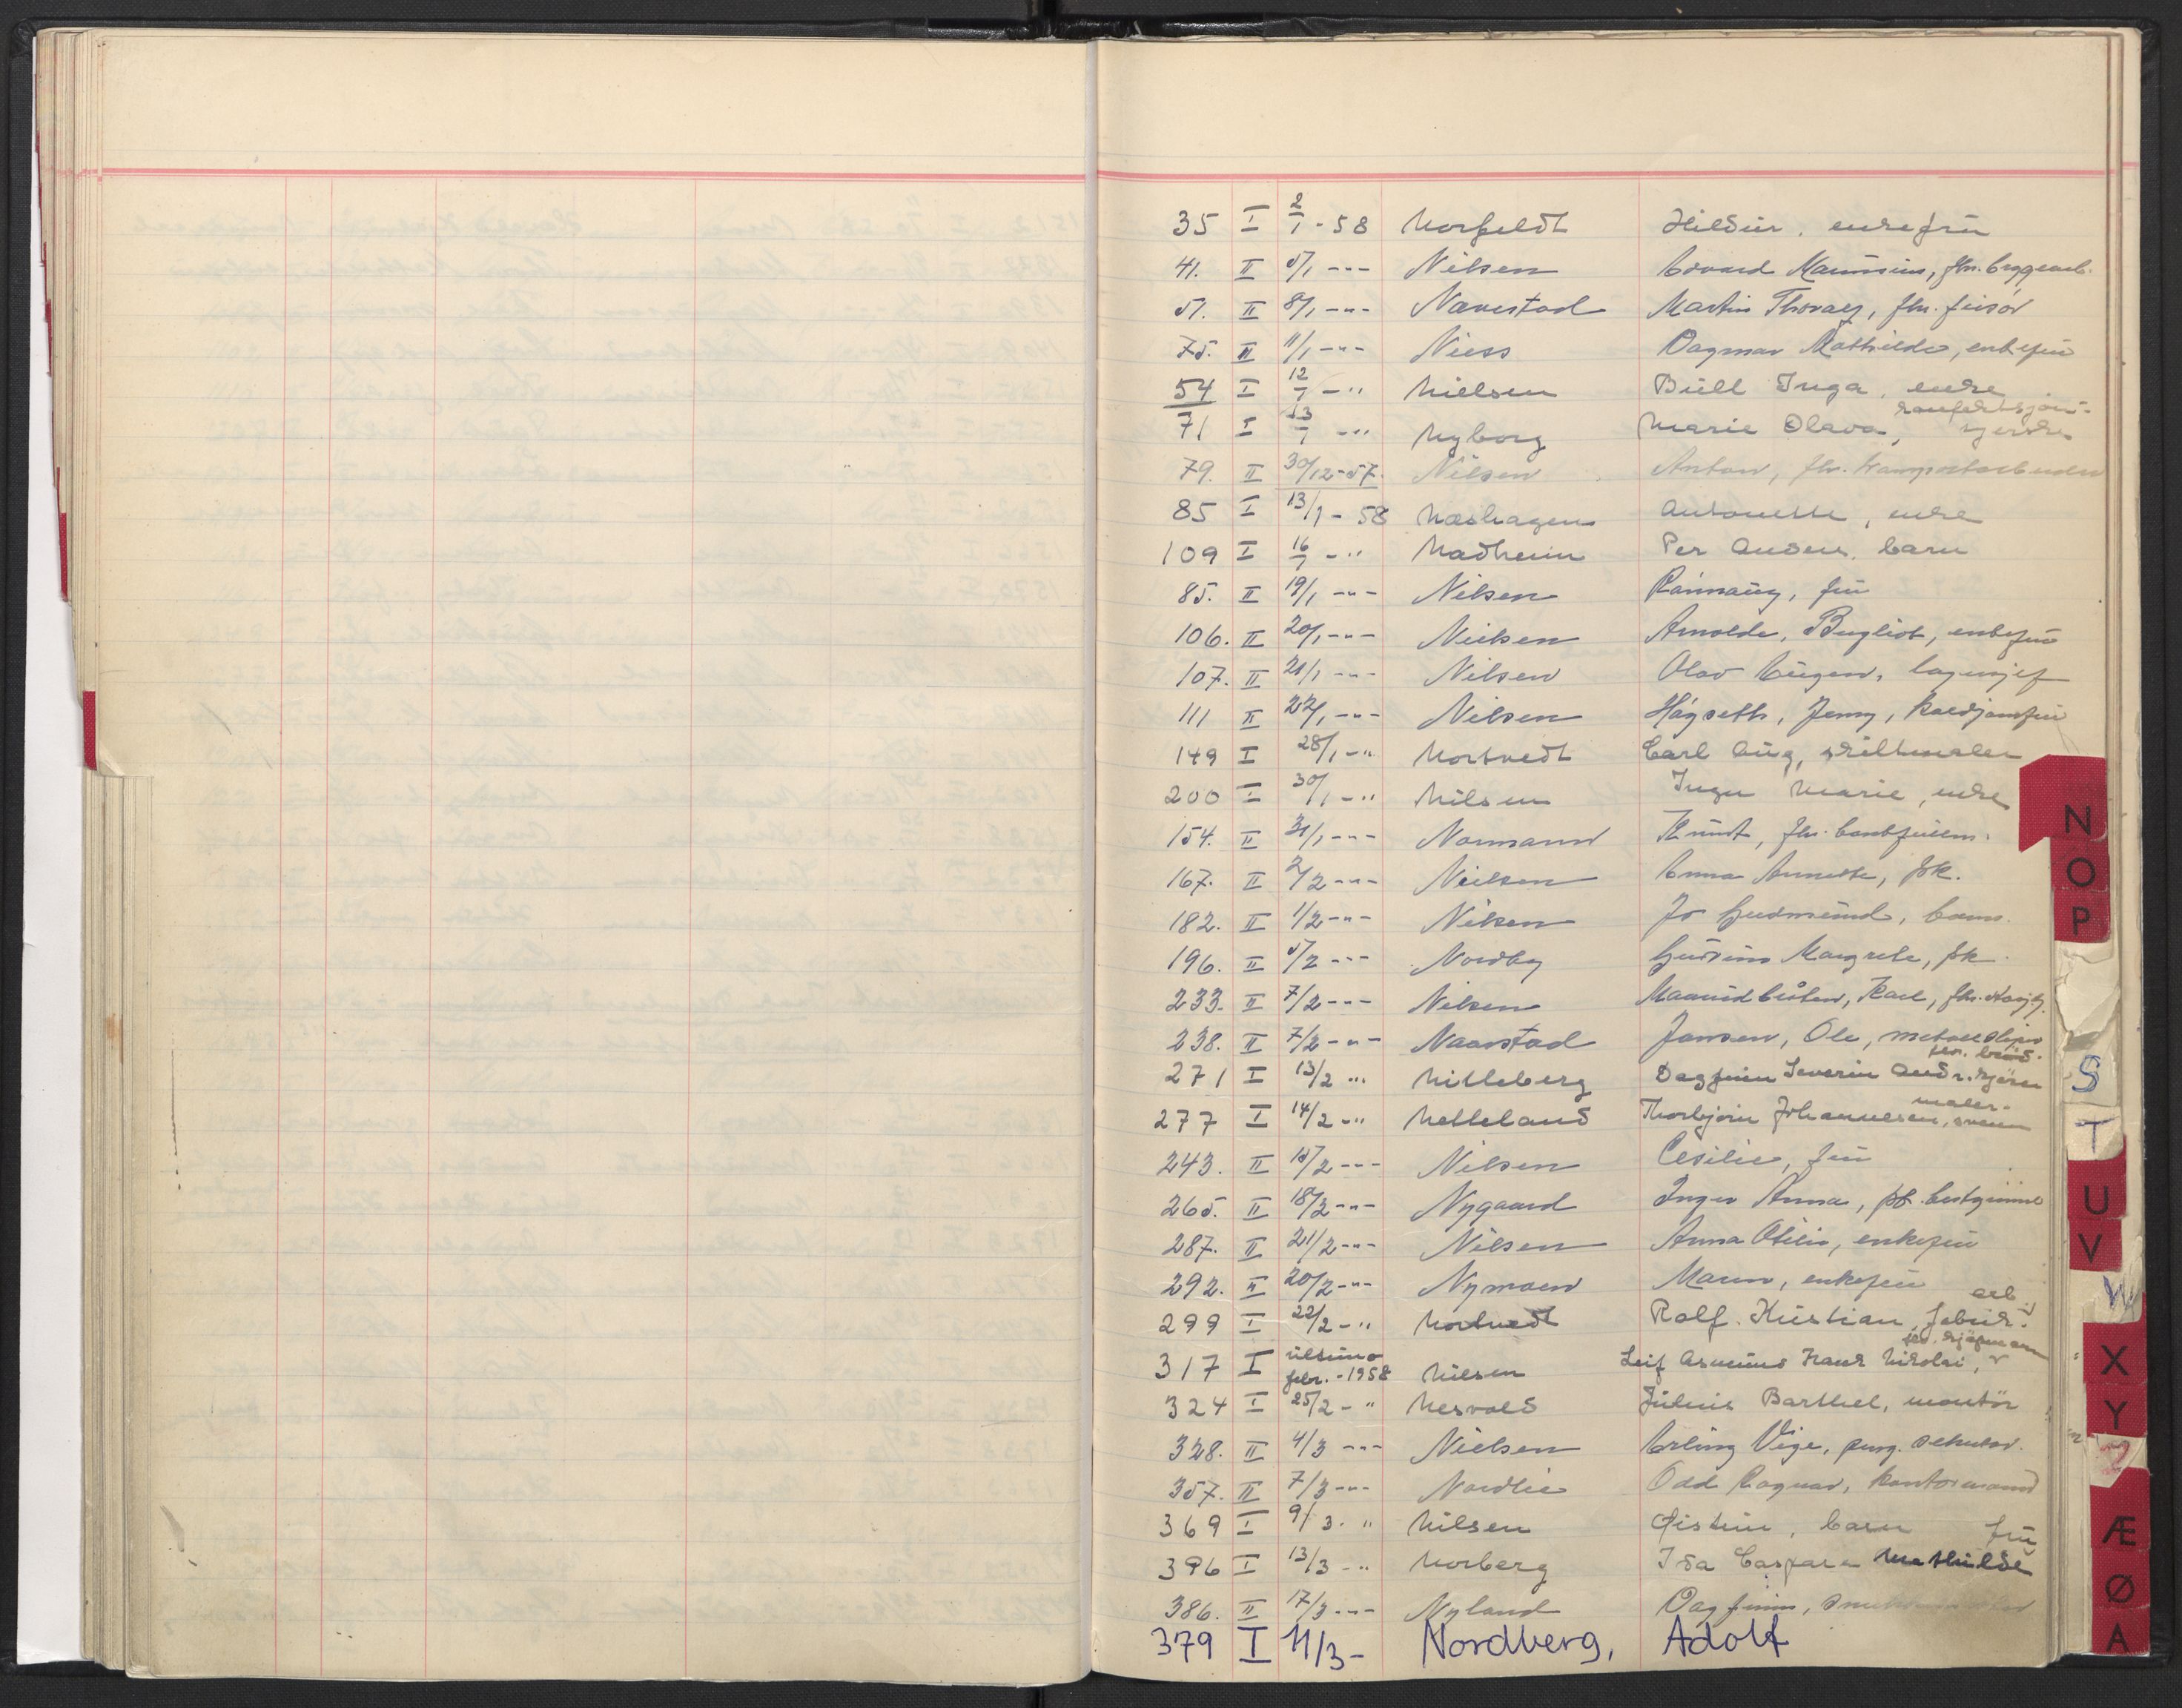 35 I 2/1 - 58 Norfeldt Hildur, enkefru
41. II 5/1 --- Nilsen Edvard Maurnius, fhv. byggearb.
51. II 8/1 -"- Nævestad Martin Thoralf, fhv. frisør
75. II 11/1 --- Niess Dagmar Mathilde, enkefru
54 I 12/1 - " Nielsen Büll Inga, enke
71 I 13/1 - " Nyborg Marie Olava, konfeksjons-syerske
79. II 30/12-57. Nilsen Anton, fhv. transportarbeider
85 I 13/1 - 58 Næshagen Antonette, enke
109 I 16/1 - " Nadheim Per Anders, barn
85. II 19/1 -"- Nilsen Rannaug, fru
106. II 20/1 -"- Nielsen Arnolda, Bergliot, enkefru
107. II 21/1 -"- Nilsen Olav Eugen, lagersjef
111 II 22/1 -"- Nilsen Høgseth, Jenny,
149 I 28/1 - " Nortvedt Carl Aug, skiltmaler
200 I 30/1 - " Nilsen Inga Marie, enke
154. II 31/1 --- Normann Knut, fhv.
167. II 2/2 -"- Nielsen Emma Annette, frk.
182. II 1/2 -"- Nilsen Jo Gudmund, barn
196. II 5/2 --- Nordby Gudrun Margrete, frk.
233. II 7/2 --- Nilsen Karl, fhv.
238. II 7/2 -"- Naarstad Jansen, Ole, metallsliper
271 I 13/2 " Nilleberg Dagfinn Severin Andr. fhv. brød.kjører
277 I 14/2 - " Nelleland Thorbjørn Johannesen, maler-svenn
243. II 15/2 --- Nilsen Cesilie, fru
265. II 18/2 -"- Nygaard Inger Anna, frk. bestyrinne
287. II 21/2 -"- Nilsen Anna Otilie, enkefru
292. II 20/2 -"- Nymoen Maren, enkefru
299 I 22/2 - " Nortvedt Rolf Kristian, fabrik.arb
317 I ultimo febr. - 1958 Nilsen Leif Asmund Frank Nikolai, fhv. sjømann
324 I 25/2 - " Nesvold Julius Barthel, montör
328. II 4/3 --- Nielsen Erling Vige, pens. sekretær.
357. II 7/3 -"- Nordlie Odd Ragnar, kontormann
369 I 9/3. " Nilsen Øistein, barn
396 I 13/3 - " Norberg Ida Caspara Mathilde fru
386. II 17/3 -"- Nyland Dagfinn,
379 I 11/3 - Nordberg, Adolf
N
O
P
S
T
U
V
W
X
Y
Z
Æ
Ø
A